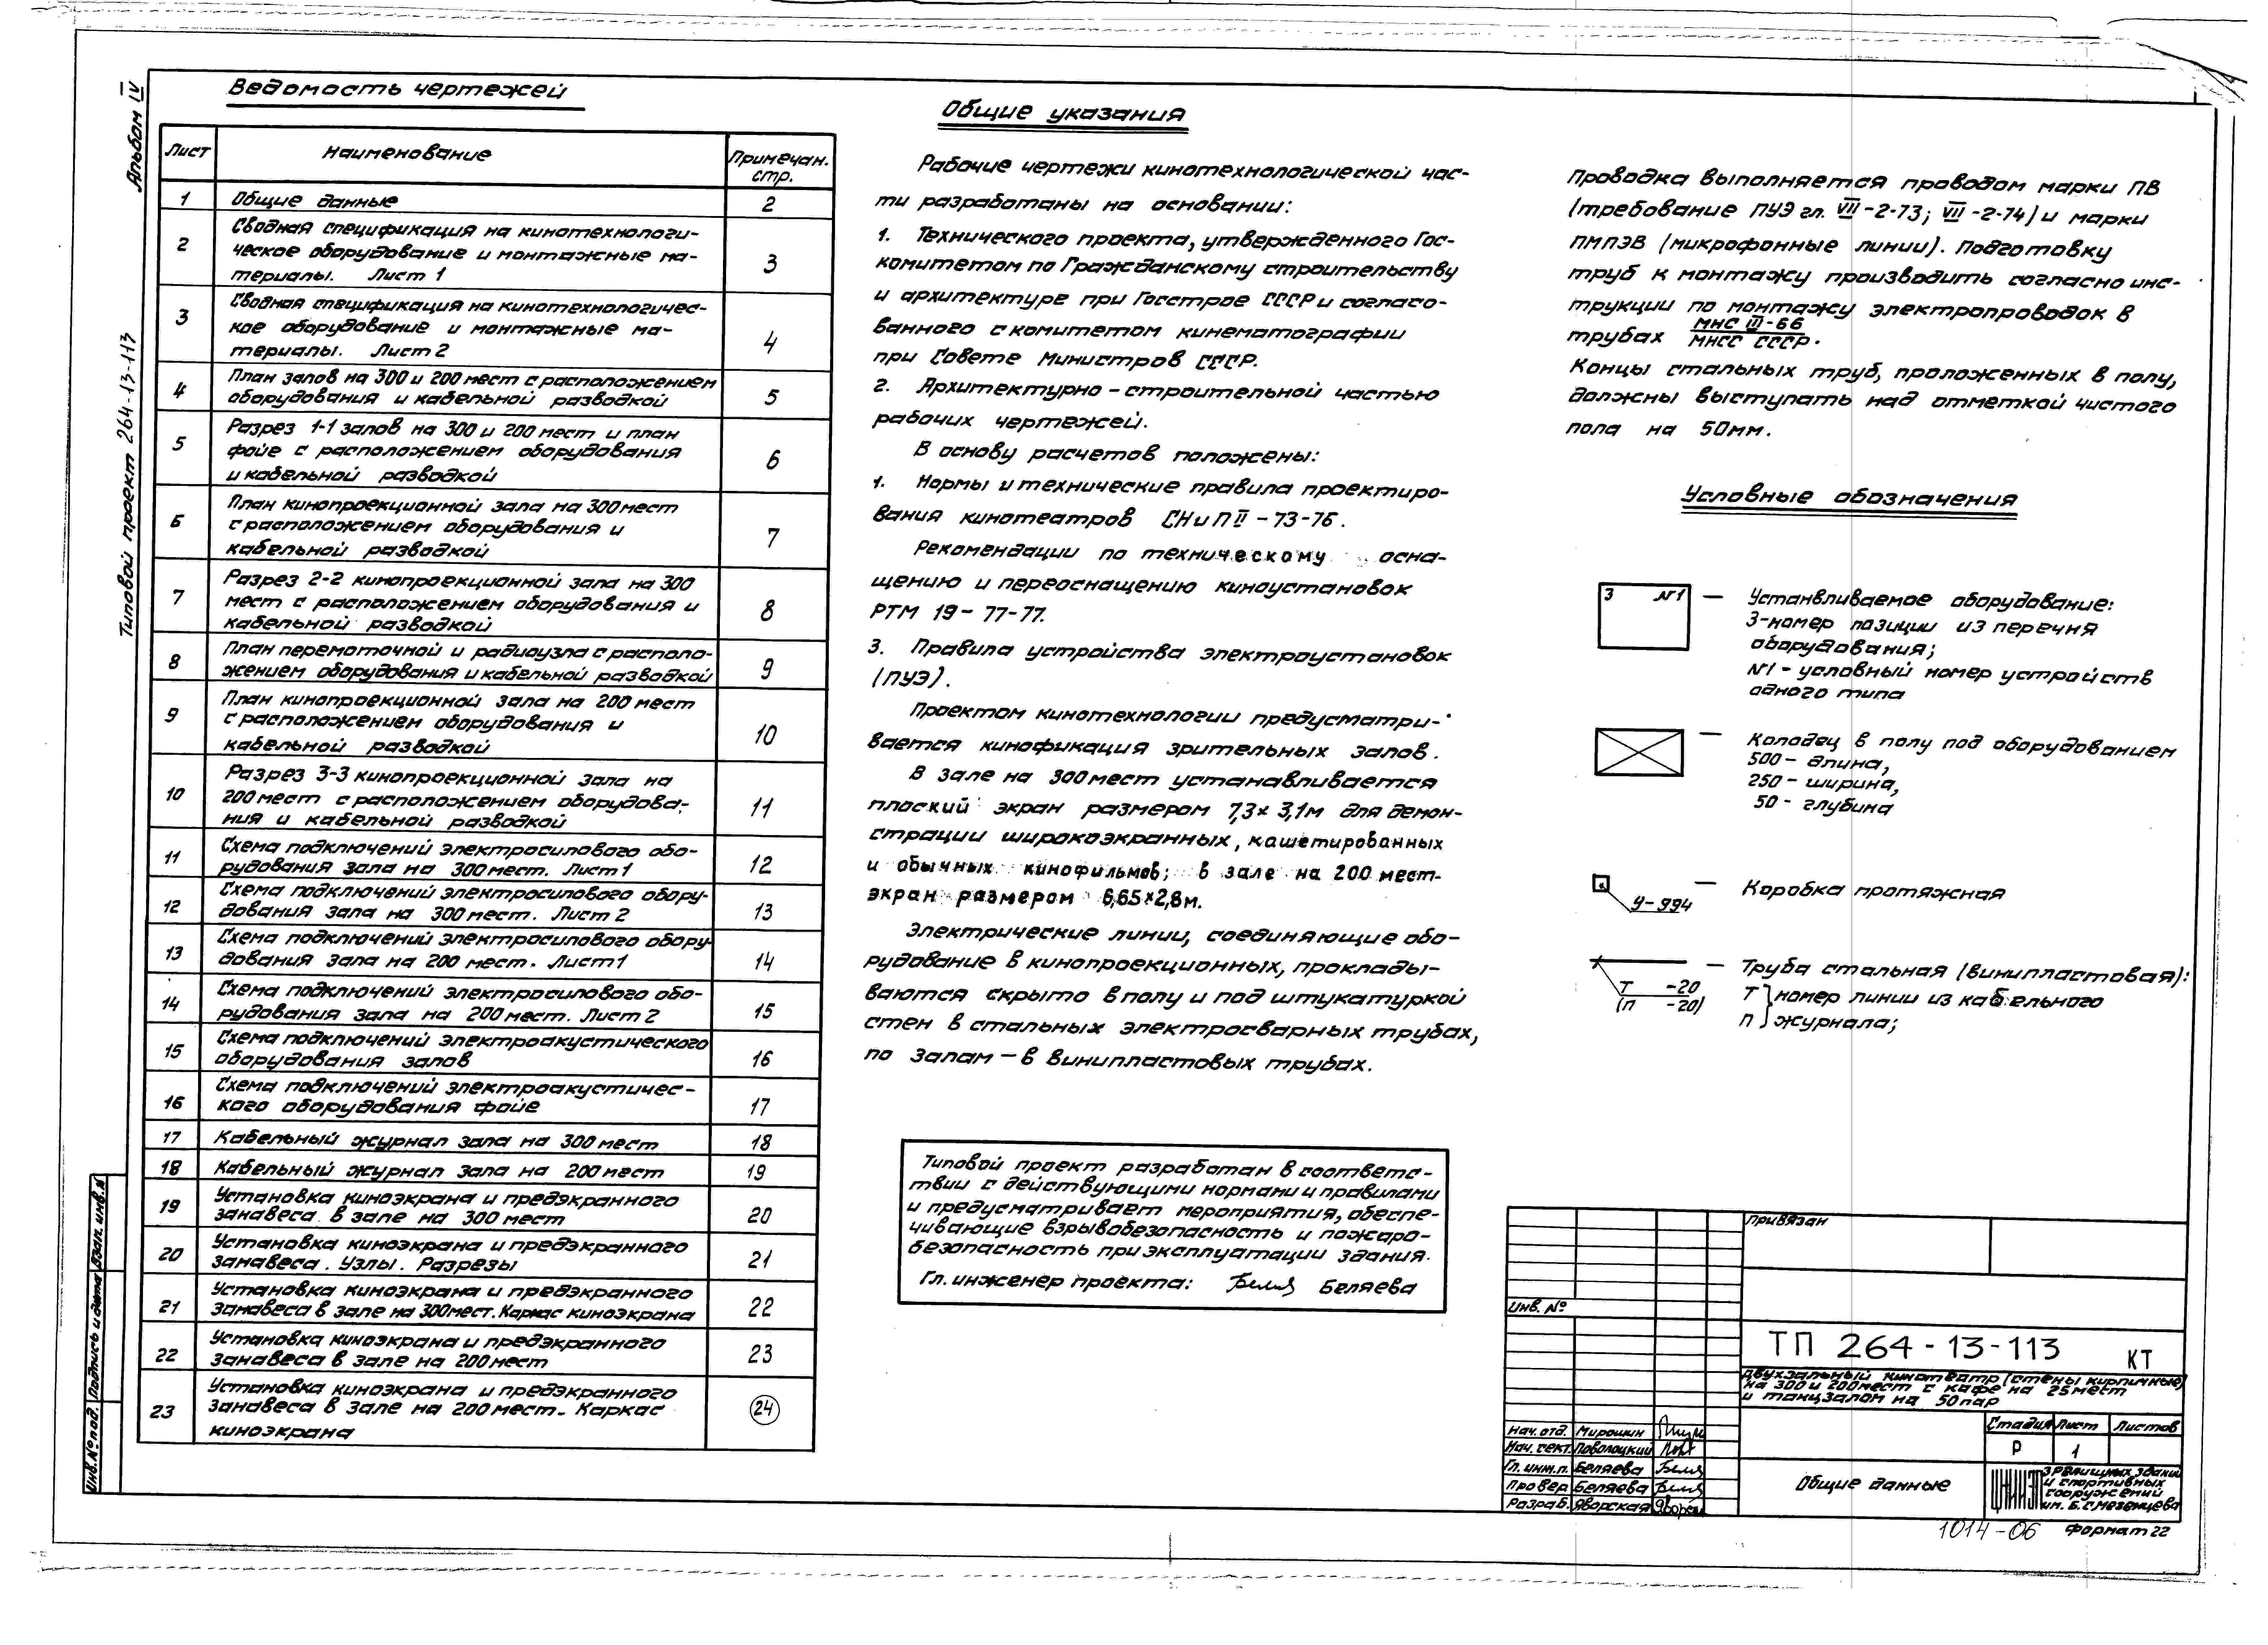 Альбом IV
Типовой проект 264-13-113
Ведомость чертежей
Лист Наименование Примечан. стр.
1 Общие данные 2
2 Сводная спецификация на кинотехнологи-
ческое оборудование и монтажные ма-
териалы. Лист 1 3
3 Сводная спецификация на кинотехнологичес-
кое оборудование и монтажные ма-
териалы. Лист 2 4
4 План залов на 300 и 200 мест с расположением
оборудования и кабельной разводкой 5
5 Разрез 1-1 залов на 300 и 200 мест и план
фойе с расположением оборудования
и кабельной разводкой 6
6 План кинопроекционной зала на 300 мест
с расположением оборудования и
кабельной разводкой 7
7 Разрез 2-2 кинопроекционной зала на 300
мест с расположением оборудования и
кабельной разводкой 8
8 План перемоточной и радиоузла с располо-
жением оборудования и кабельной разводкой 9
9 План кинопроекционной зала на 200 мест
с расположением оборудования и
кабельной разводкой 10
10 Разрез 3-3 кинопроекционной зала на
200 мест с расположением оборудова-
ния и кабельной разводкой 11
11 Схема подключений электросилового обо-
рудования зала на 300 мест. Лист 1 12
12 Схема подключений электросилового обору-
дования зала на 300 мест. Лист 2 13
13 Схема подключений электросилового обору-
дования зала на 200 мест. Лист 1 14
14 Схема подключений электросилового обо-
рудования зала на 200 мест. Лист 2 15
15 Схема подключений электроакустического
оборудования залов 16
16 Схема подключений электроакустичес-
кого оборудования фойе 17
17 Кабельный журнал зала на 300 мест 18
18 Кабельный журнал зала на 200 мест 19
19 Установка киноэкрана и предэкранного
занавеса в зале на 300 мест 20
20 Установка киноэкрана и предэкранного
занавеса. Узлы. Разрезы 21
21 Установка киноэкрана и предэкранного
занавеса в зале на 300 мест. Каркас киноэкрана 22
22 Установка киноэкрана и предэкранного
занавеса в зале на 200 мест 23
23 Установка киноэкрана и предэкранного
занавеса в зале на 200 мест. Каркас
киноэкрана 24
Общие указания
Рабочие чертежи кинотехнологической час-
ти разработаны на основании:
1. Технического проекта, утвержденного Гос-
комитетом по Гражданскому строительству
и архитектуре при Госстрое СССР и согласо-
ванного с комитетом кинематографии
при Совете Министров СССР.
2. Архитектурно-строительной частью
рабочих чертежей.
В основу расчетов положены:
1. Нормы и технические правила проектиро-
вания кинотеатров СНиП II-73-76.
Рекомендации по техническому осна-
щению и переоснащению киноустановок
РТМ 19-77-77.
3. Правила устройства электроустановок
(ПУЭ).
Проектом кинотехнологии предусматри-
вается кинофикация зрительных залов.
В зале на 300 мест устанавливается
плоский экран размером 7,3×3,1м для демон-
страции широкоэкранных, кашетированных
и обычных кинофильмов; в зале на 200 мест-
экран размером 6,65×2,8м.
Электрические линии, соединяющие обо-
рудование в кинопроекционных, проклады-
ваются скрыто в полу и под штукатуркой
стен в стальных электросварных трубах,
по залам — в винипластовых трубах.
Типовой проект разработан в соответс-
твии с действующими нормами и правилами
и предусматривает мероприятия, обеспе-
чивающие взрывобезопасность и пожаро-
безопасность при эксплуатации здания.
Гл. инженер проекта: Беляева
Проводка выполняется проводом марки ПВ
(требование ПУЭ гл. VII-2-73; VII-2-74) и марки
ПМПЭВ (микрофонные линии). Подготовку
труб к монтажу производить согласно инс-
трукции по монтажу электропроводок в
трубах МНС III-66
МНСС СССР.
Концы стальных труб, проложенных в полу,
должны выступать над отметкой чистого
пола на 50мм.
Условные обозначения
3 №1 — Устанвливаемое оборудование:
3-номер позиции из перечня
оборудования;
№1 - условный номер устройств
одного типа
— Колодец в полу под оборудованием
500 - длина,
250 - ширина,
50 - глубина
У-994 — Коробка протяжная
Т -20
(П -20)
— Труба стальная (винипластовая):
Т } номер линии из кабельного
П } журнала;
Привязан
Инв. №
ТП 264-13-113 КТ
Двухзальный кинотеатр (стены кирпичные)
на 300 и 200 мест с кафе на 25 мест
и танцзалом на 50 пар
Стадия Лист Листов
Р 1
Нач. отд. Мирошин
Нач. сект. Поволоцкий
Гл. инж. п. Беляева
Провер Беляева
Разраб. Яворская
Общие данные
ЦНИИЭП зрелищных зданий
и спортивных
сооружений
им. Б.С.Мезенцева
1014-06 Формат 22
Взам. инв. №
Подпись и дата
Инв. № под.